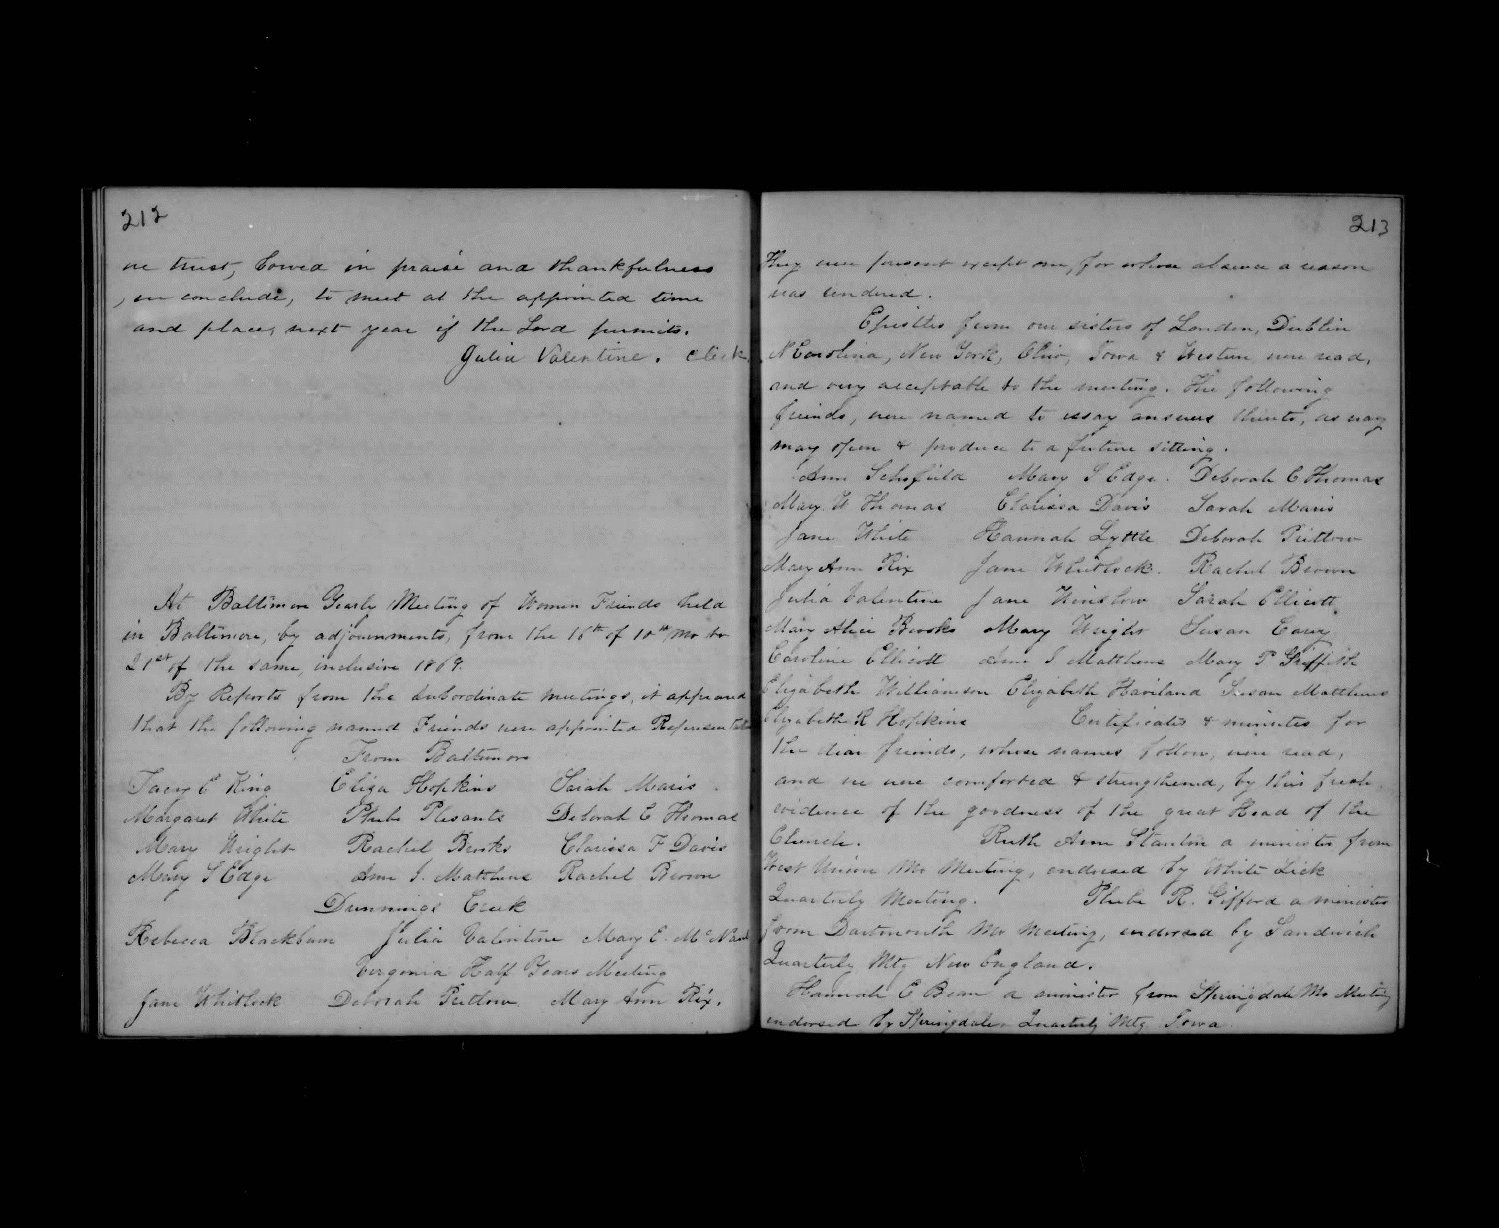 212
we trust, bowed in praise and thankfulness
, we conclude, to meet at the appointed time
and place, next year if the Lord permits.
Julia Valentine. Clerk.
At Baltimore Yearly Meeting of Women Friends held
in Baltimore, by adjournments, from the 16th of 10th mo to
21st of the same, inclusive 1869.
By Reports from the Subordinate meetings, it appeared
that the following named Friends were appointed Representatives
From Baltimore
Tacey E King Eliza Hopkins Sarah Maris
Margaret White Phebe Plesants Deborah C Thomas
Mary Wright Rachel Brooks Clarissa F Davis
Mary S Edge Ann J. Matthews Rachel Brown
Dunnings Creek
Rebecca Blackburn Julia Valentine Mary E. McNeal
Vergonia Half Years Meeting
Jane Whitlock Deborah Pretlow Mary Ann Rix.
213
They were present except one, for whose absence a reason
was rendered.
Epistles from our sisters of London, Dublin
N Carolina, New York, Ohio, Iowa & Western were read,
and very acceptable to the meeting. The following
friends, were named to essay answers thereto, as way
may open & produce to a future sitting.
Ann Schofield Mary S Edge. Deborah C Thomas
Mary W Thomas Clarissa Davis Sarah Maris
Jane White Hannah Lyttle Deborah Pretlow
Mary Ann Rix Jane Whitlock. Rachel Brown
Julia Valentine Jane Winslow Sarah Ellicott
Mary Alice Brooks Mary Wright Susan Carey
Caroline Ellicott Ann J Matthews Mary P Griffith
Elizabeth Williamson Elizabeth Haviland Susan Matthews
Elizabeth R Hopkins Certificates & minutes for
the dear friends, whose names follow, were read,
and we were comforted & strengthened, by this fresh
evidence of the goodness of the great Head of the
Church. Ruth Ann Stanton a minister from
West Union Mo Meeting, endorsed by White Lick
Quarterly Meeting. Phebe R. Gifford a minister
from Dartmouth Mo Meeting, endorsed by Sandwich
Quarterly Mtg New England.
Hannah E Bean a minister from Springdale Mo Meeting
endorsed by Springdale Quarterly Mtg Iowa